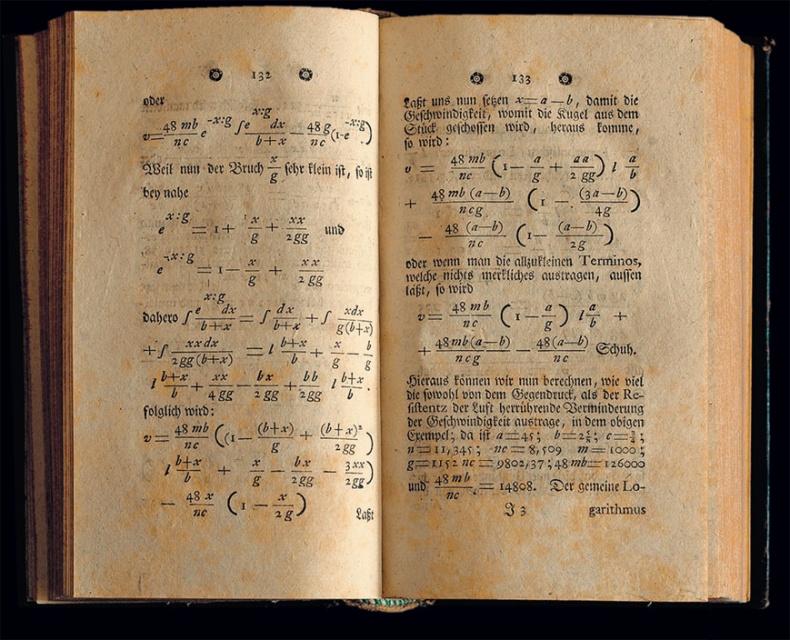 132
oder
v = \frac{48 mb}{nc} e^{-x:g} \int \frac{e^{x:g} dx}{b+x} - \frac{48 g}{nc} (1-e^{-x:g})
Weil nun der Bruch \frac{x}{g} sehr klein ist, so ist
bey nahe
e^{x:g} = 1 + \frac{x}{g} + \frac{xx}{2gg} und
e^{-x:g} = 1 - \frac{x}{g} + \frac{xx}{2gg}
dahero \int \frac{e^{x:g} dx}{b+x} = \int \frac{dx}{b+x} + \int \frac{xdx}{g(b+x)}
+ \int \frac{xxdx}{2gg(b+x)} = l \frac{b+x}{b} + \frac{x}{g} - \frac{b}{g}
l \frac{b+x}{b} + \frac{xx}{4gg} - \frac{bx}{2gg} + \frac{bb}{2gg} l \frac{b+x}{b}.
folglich wird:
v = \frac{48 mb}{nc} ((1 - \frac{(b+x)}{g} + \frac{(b+x)^2}{2gg})
l \frac{b+x}{b} + \frac{x}{g} - \frac{bx}{2gg} - \frac{3xx}{2gg})
- \frac{48 x}{nc} (1 - \frac{x}{2g})
Laßt
133
Laßt uns nun setzen x = a — b, damit die
Geschwindigkeit, womit die Kugel aus dem
Stück geschossen wird, heraus komme,
so wird:
v = \frac{48 mb}{nc} (1 - \frac{a}{g} + \frac{aa}{2gg}) l \frac{a}{b}
+ \frac{48 mb (a—b)}{ncg} (1 - \frac{(3a—b)}{4g})
- \frac{48 (a—b)}{nc} (1 - \frac{(a—b)}{2g})
oder wenn man die allzukleinen Terminos,
welche nichts merkliches austragen, aussen
läßt, so wird
v = \frac{48 mb}{nc} (1 - \frac{a}{g}) l \frac{a}{b} +
+ \frac{48 mb(a—b)}{ncg} - \frac{48(a—b)}{nc} Schuh.
Hieraus können wir nun berechnen, wie viel
die sowohl von dem Gegendruck, als der Re-
sistentz der Luft herrührende Verminderung
der Geschwindigkeit austrage, in dem obigen
Exempel; da ist a = 45;
n = 11,345; nc = 8,509 m = 1000;
g = 1152 nc = 9802,37; 48 mb = 126000
und \frac{48 mb}{nc} = 14808. Der gemeine Lo-
J 3 garithmus